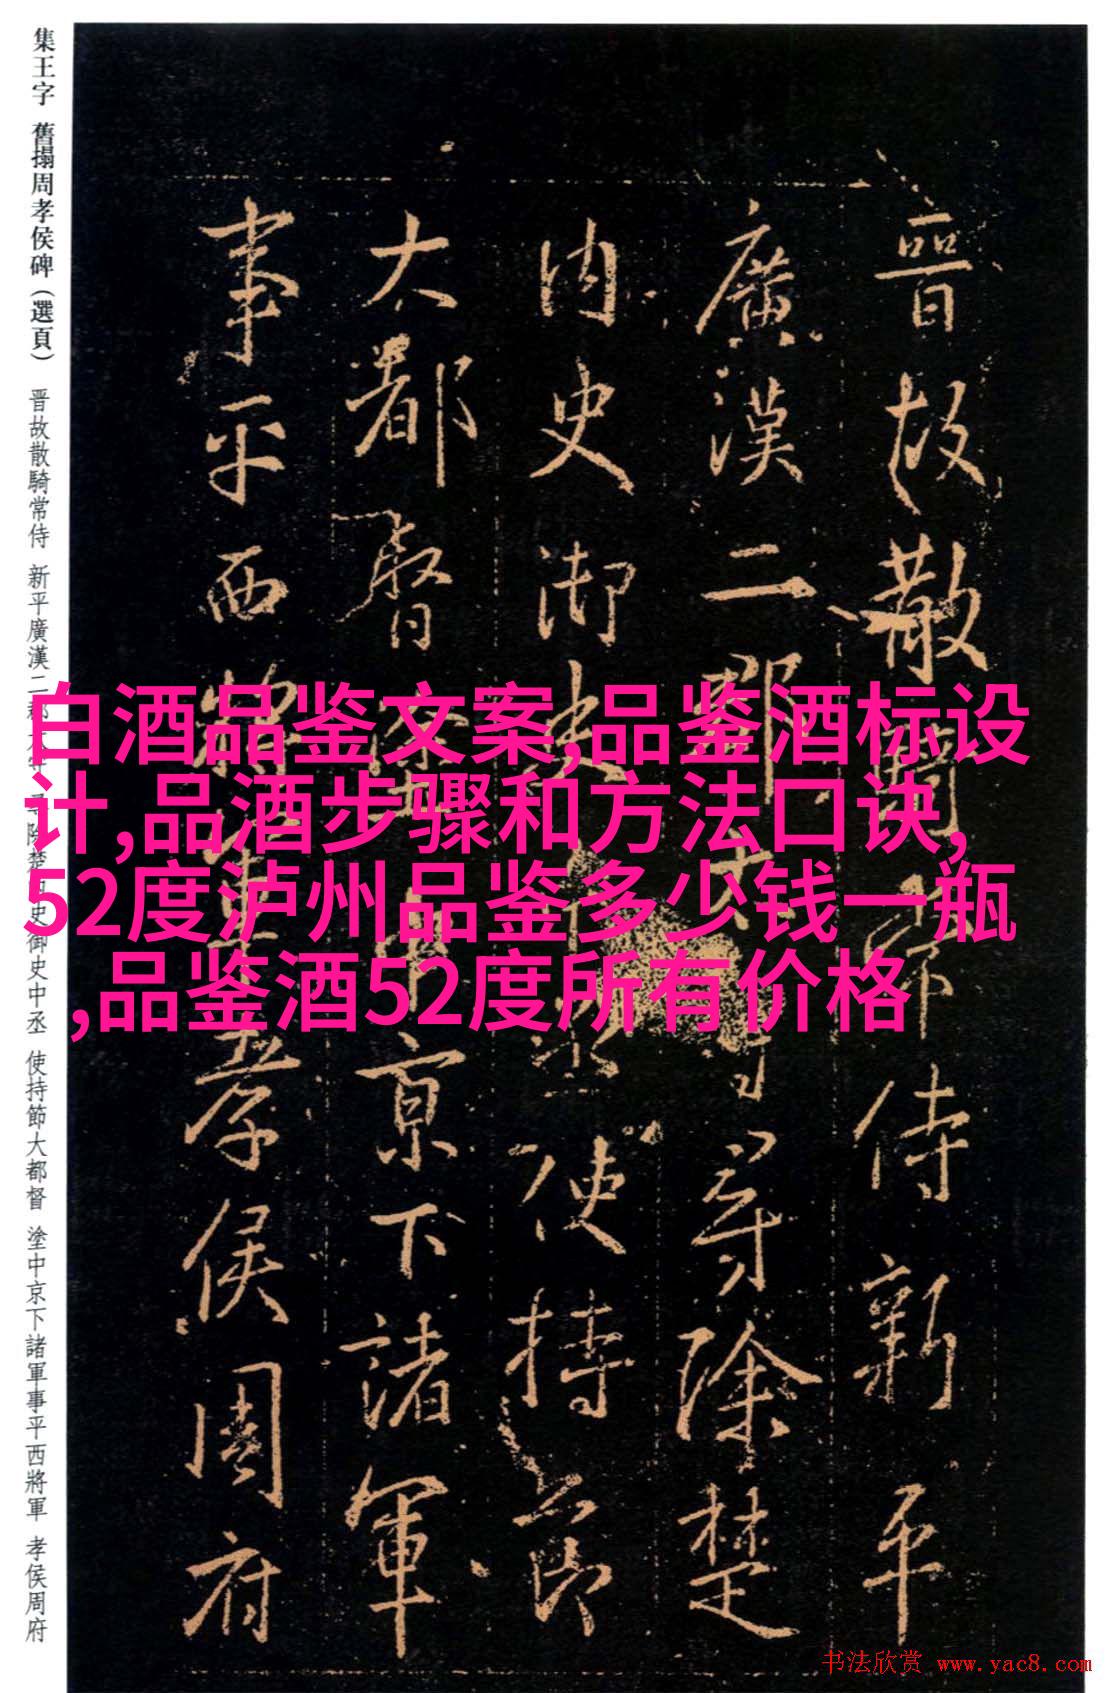 集王字 舊搨周孝侯碑（選頁） 晋故散騎常侍 新平廣漢二郡太守 尋除楚内史御史中丞 使持節大都督 塗中京下諸軍事平西將軍 孝侯周府
晉故散騎常侍新平
廣漢二郡太守尋除楚
内史御史中丞使持節
大都督塗中京下諸軍
事平西將軍孝侯周府
白酒品鉴文案,品鉴酒标设
计,品酒步骤和方法口诀,
52度泸州品鉴多少钱一瓶
,品鉴酒52度所有价格
书法欣赏 www.yac8.com